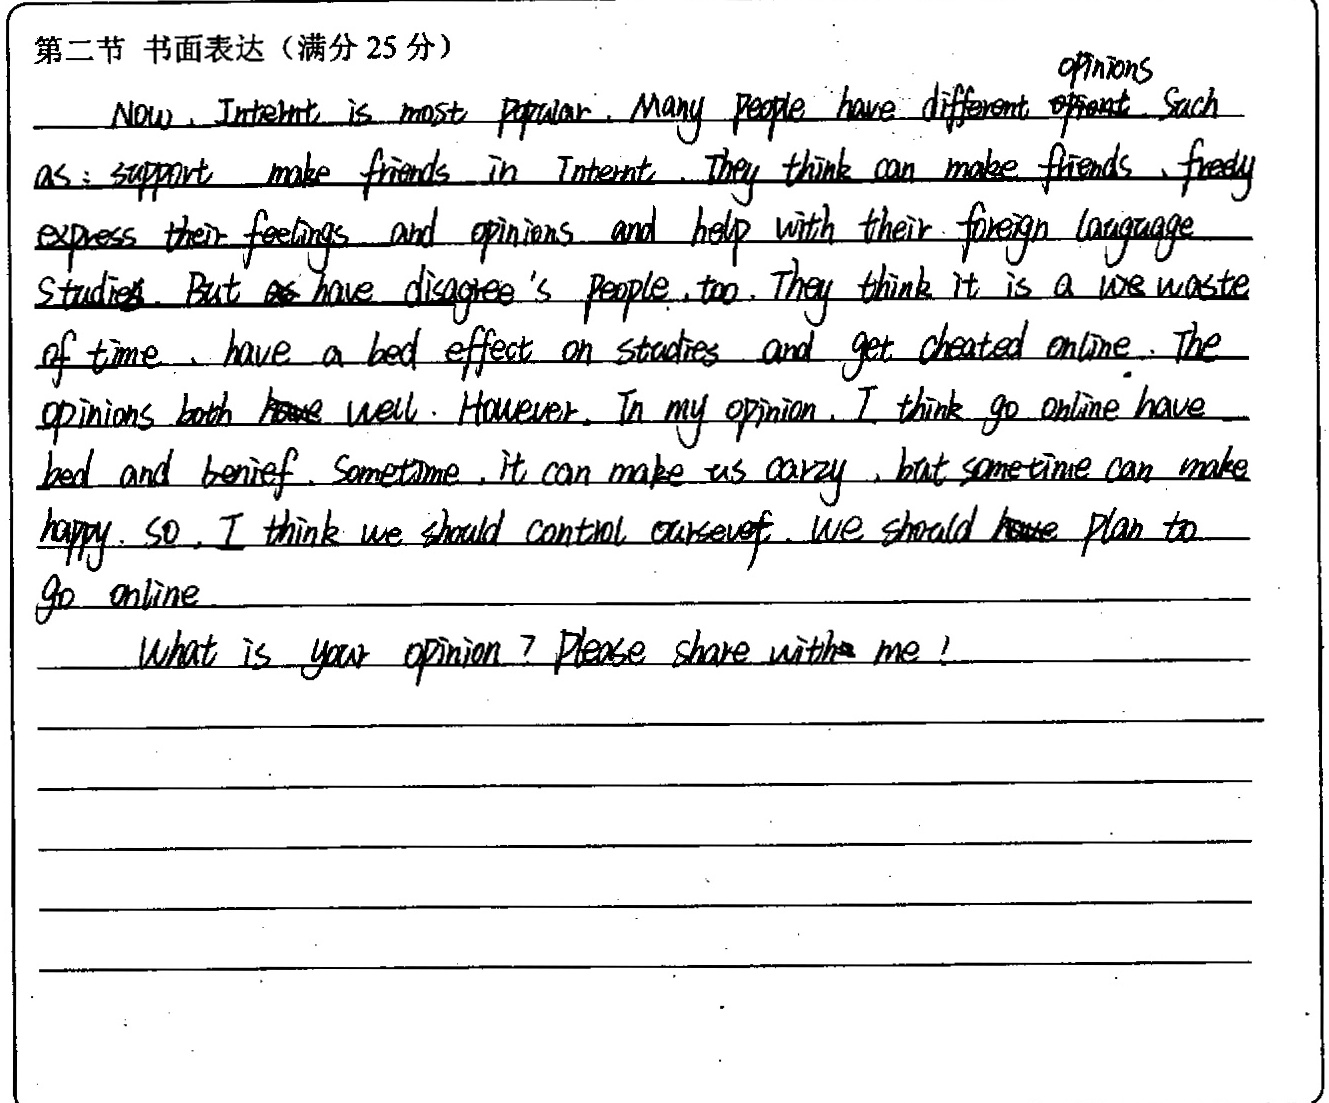 第二节 书面表达（满分 25 分）
opinions
Now, Internt is most popular. Many people have different Such
as: support make friends in Internt. They think can make friends, freely
express their feelings and opinions and help with their foreign lauguage
studies. But have disagree's people, too. They think it is a waste
of time, have a bed effect on studies and get cheated online. The
opinions both well. However, In my opinion, I think go online have
bed and benief. Sometime, it can make us carzy, but sometime can make
happy. so, I think we should control ourselvef. We should plan to
go online
What is your opinion? Please share with me!